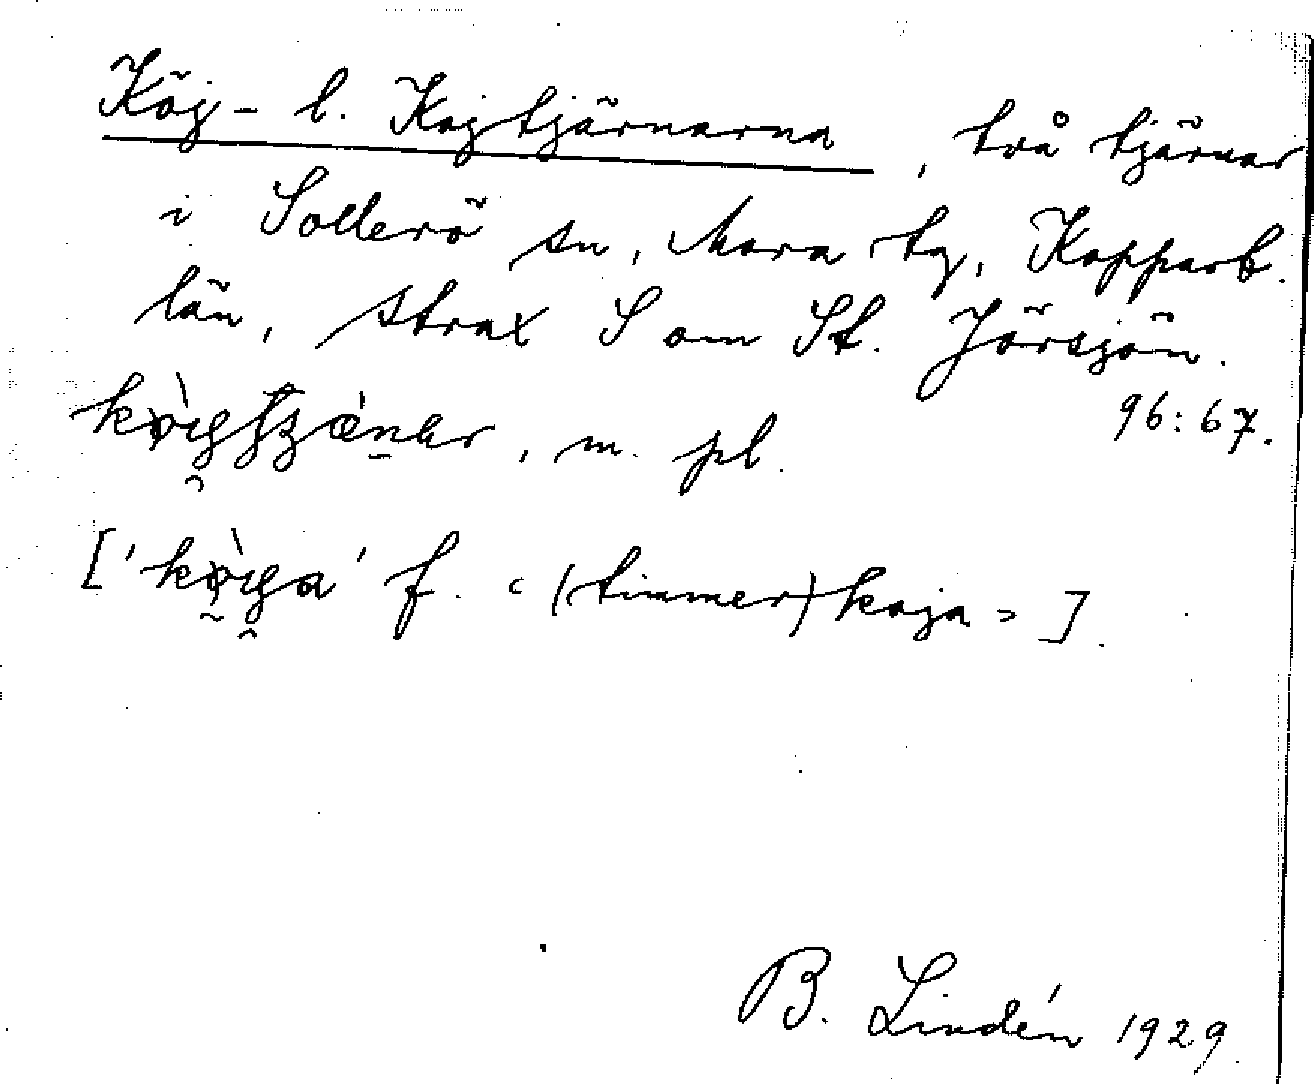 Köj- l. Kojtjärnarna, två tjärnar
i Sollerö sn, Mora tg, Kopparb.
län, strax S om St. Jörsjön.
96:67.
, m. pl.
[' ' f. ‹(timmer)koja› ].
B. Lindén 1929.